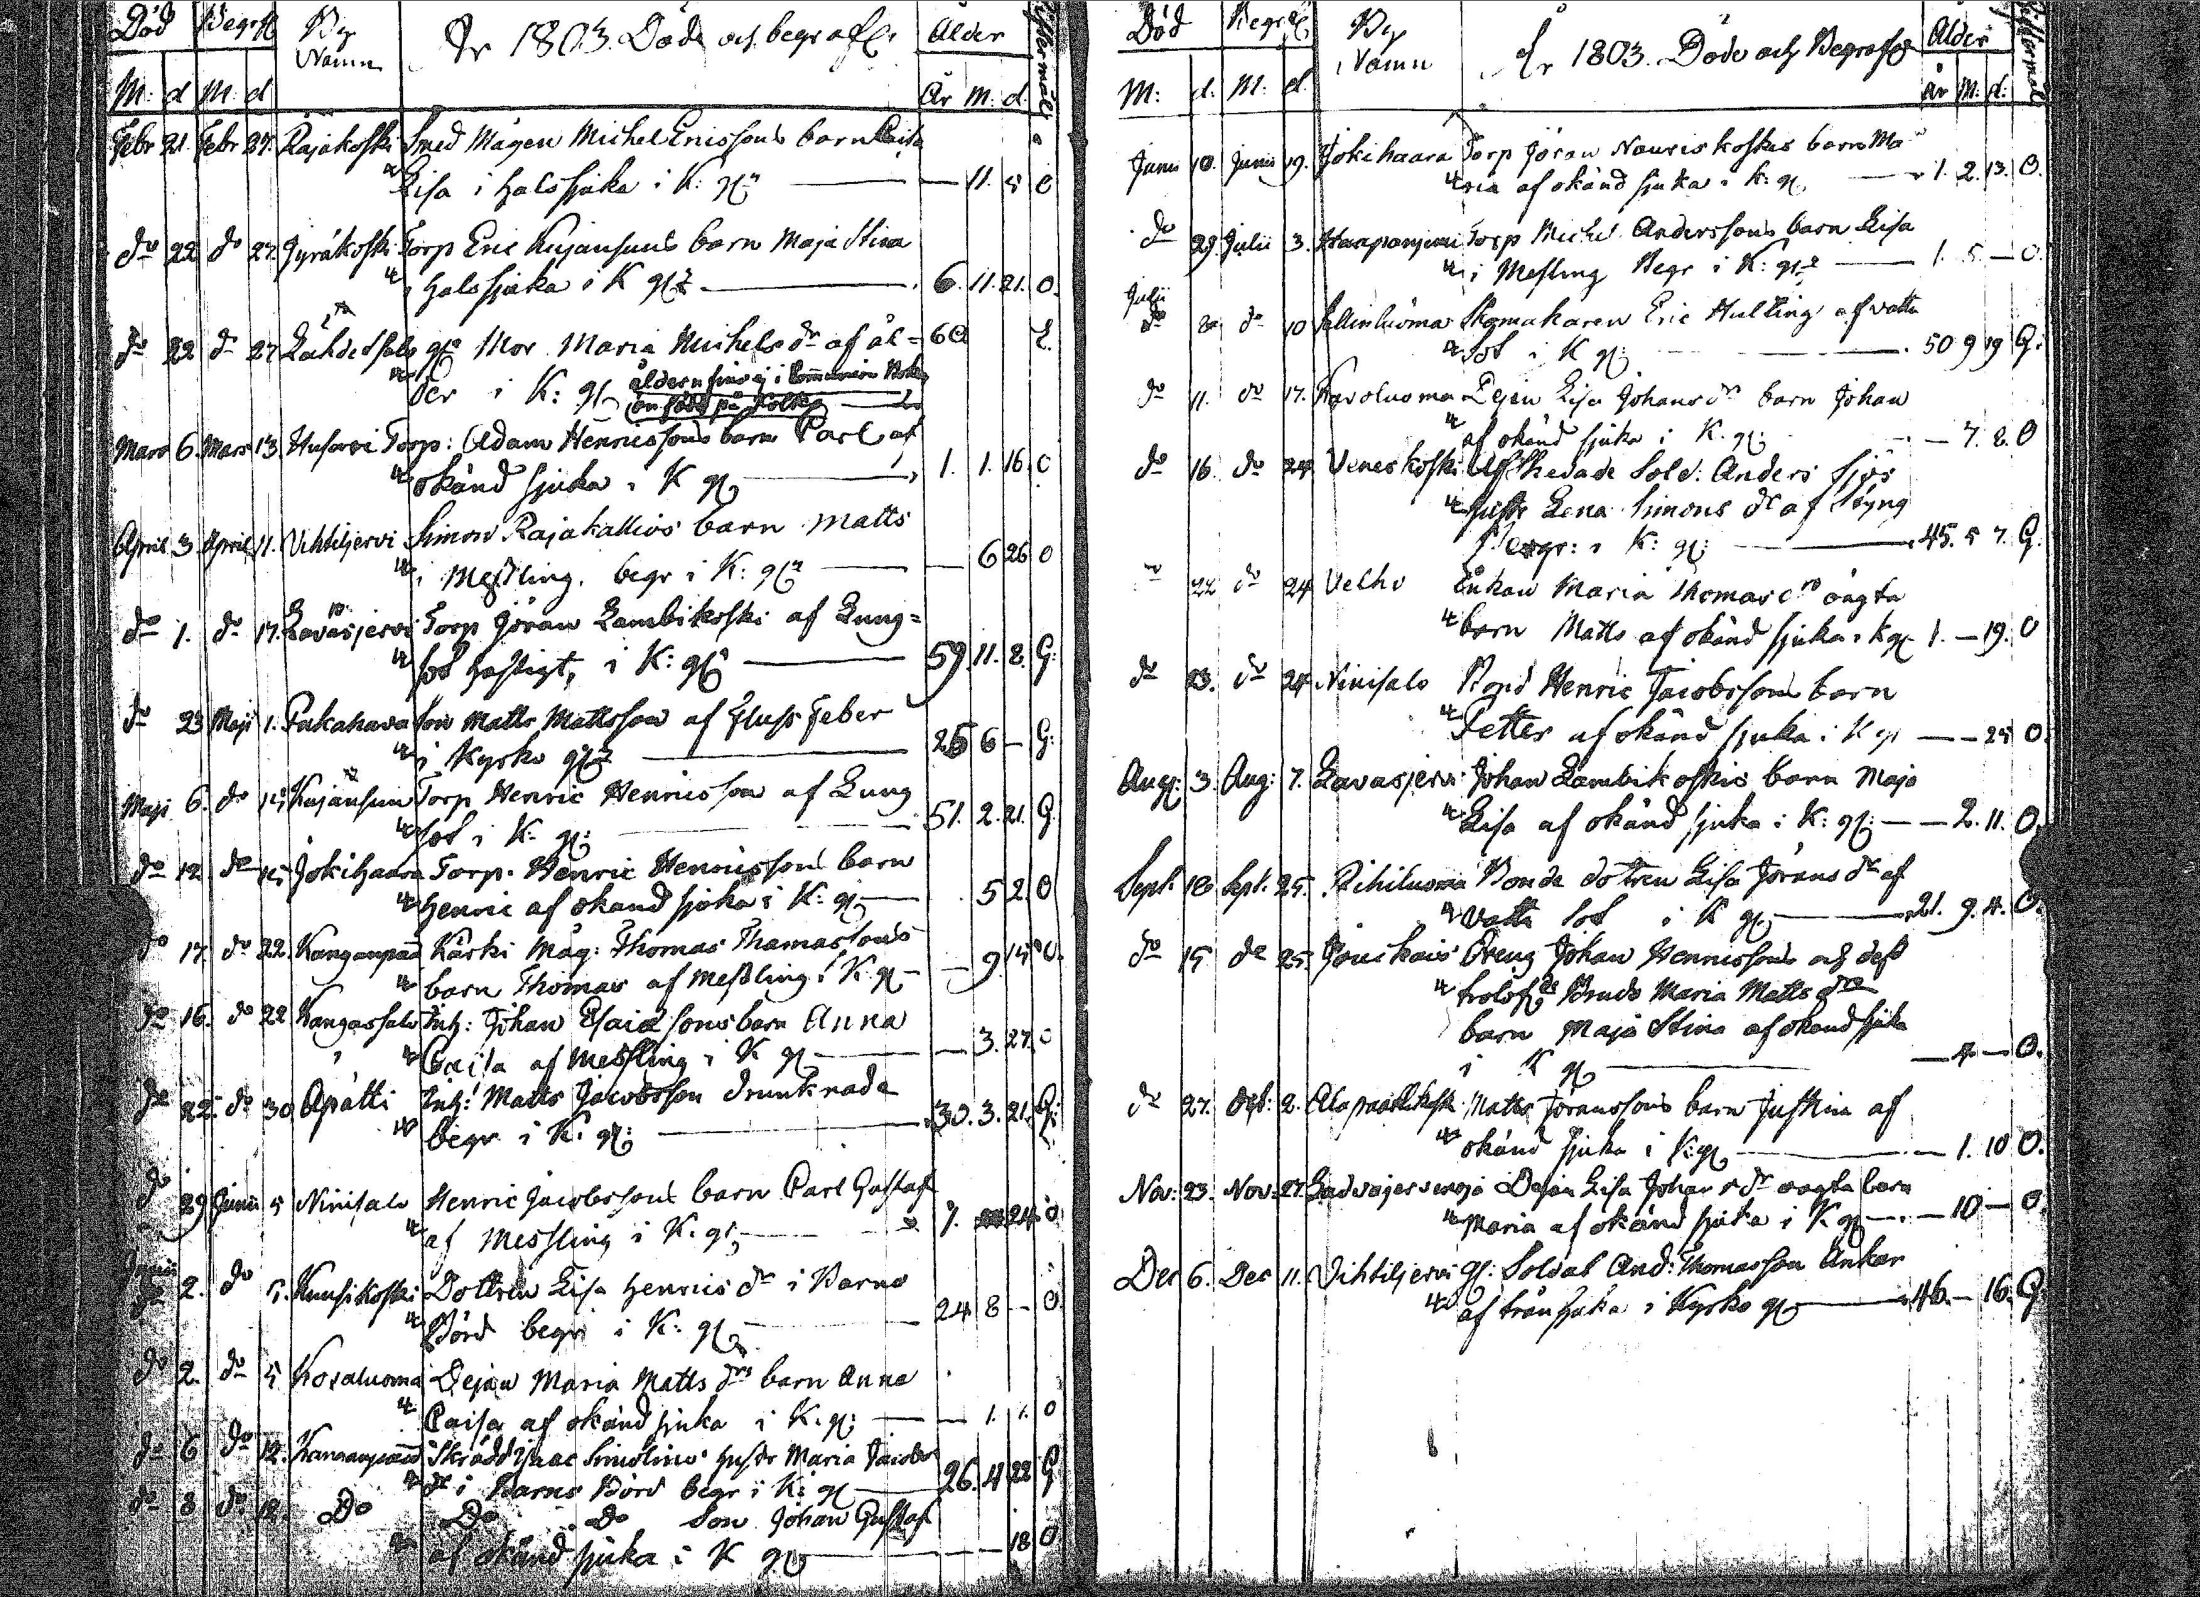 Död Begrafl By Namn År 1803. Döde och begrafl. Ålder Giftermål
M: d M: d År M: d.
Febr 21. Febr 27. Rajakoski Smed Mågen Michel Ericssons barn Caisa
Lisa i halssjuka i K: g: — 11. 5 O
do 22 do 27. Jyräkoski Torp Eric Kujansuus barn Maja Stina
halssjuka i K g: 6. 11. 21. O.
do 22 do 27 Lähdesalo gl Mor Maria Michels dr af ål= 60 E.
der i K: g: åldern fins ej i Communion Boken
Mars 6. Mars 13. Husarvi Torp: Adam Henricssons barn Carl af
okänd sjuka i K g: 1. 1. 16. O
April 3 April 11. Vihtiljervi Simon Rajakallios barn Matts
i Messling. begr i K: g: — 6 26 O
do 1. do 17. Lavasjervi Torp Göran Lambikoski af Lung=
sot hastigt, i K: g: 59. 11. 8. G:
do 23 Maji 1. Pukahava Son Matts Mattsson af Fluss Feber
i Kyrko g: 25 6 — G:
Maji 6. do 15. Kujansuu Torp Henric Henricsson af Lung
sot i K: g: 51. 2. 21. G
do 12 do 15. Jokihaara Torp. Henric Henricssons barn
Henric af okänd sjuka i K: g: 5 2. O
do 17. do 22. Kanganpää Kärki Måg: Thomas Thomassons
barn Thomas af Messling i K. g: — 9. 15 O.
do 16. do 22 Kangassalo Inh: Johan Esaiæ sons barn Anna
Caisa af Messling i K g: — 3. 27. O
do 22. do 30 Apätti Inh: Matts Jacobsson drunknade
begr i K: g: 30. 3. 21. G:
do 29 Junii 5 Ninisalo Henric Jacobssons barn Carl Gustaf
af Messling i K. g: 7. 24 O
Junii do 2. do 5. Kuusikoski Dottren Lisa Henrics dr i Barns
Börd begr i K: g: 24 8 — O
do 2. do 5 Koraluoma Dejan Maria Matts drs barn Anna
Caisa af okänd sjuka i K. g: — 1. 1. O
do 6 do 12. Kanganpää Skrädd Isaac hustr Maria Jacobs
dr i Barns Börd begr i K: g: 26. 4 22 G
do 8 do 12. Do Do Do Son Johan Gustaf
af okänd sjuka i K g: — 18 O
Död Begrafl By Namn År 1803. Döde och Begrafne Ålder Giftermål
M: d. M: d. År M: d:
Junii 10. Junii 19. Jokihaara Torp Jöran Nauriskoskis barn Ma
ria af okänd sjuka i K: g. 1. 2. 13. O.
do 29. Julii 3. Haapanjervi Torp Michel Anderssons barn Lisa
i Messling Begr i K: g: 1. 5. — O.
Julii do 8 do 10 Sillinluoma Skomakaren Eric Hulting af vattu
Sot i K g: 50 9 19 G:
do 11. do 17. Koraluoma Dejan Lisa Johans dr barn Johan
af okänd sjuka i K. g: — 7. 8. O
do 16. do 24. Veneskoski Afskedade Sold: Anders Sjös
hustr Lena Simons dr af Styng
begr: i K: g: 45. 5 7. G.
do 22 do 24 Velho Enkan Maria Thomæ drs oägta
barn Matts af okänd sjuka i K g. 1. — 19. O
do 23. do 24 Ninisalo Bond Henric Jacobssons barn
Petter af okänd sjuka i K g: — — 25 O.
Aug: 3. Aug: 7. Lavasjervi Johan Lambikoskis barn Maja
Lisa af okänd sjuka i K: g: — 2. 11. O.
Sept. 18 Sept. 25. Riihiluoma Bonde dottren Lisa Jörans dr af
vattu Sot i K g: 21. 9. 4. O.
do 15 do 25. Dreng Johan Henricssons och dess
trolofde Brud Maria Matts drs
barn Maja Stina af okänd sjuka
i K g: — 4. — O.
do 27. Oct: 2. Matts Jöranssons barn Justina af
okänd sjuka i K: g: — 1. 10 O.
Nov: 23. Nov: 27. Dejan Lisa Johans dr oagta barn
Maria af okänd sjuka i K. g: — 10 — O.
Dec 6. Dec 11. Vihtiljervi gl: Soldat And: Thomasson Ankar
af trånsjuka i Kyrko g: 46. — 16. G.